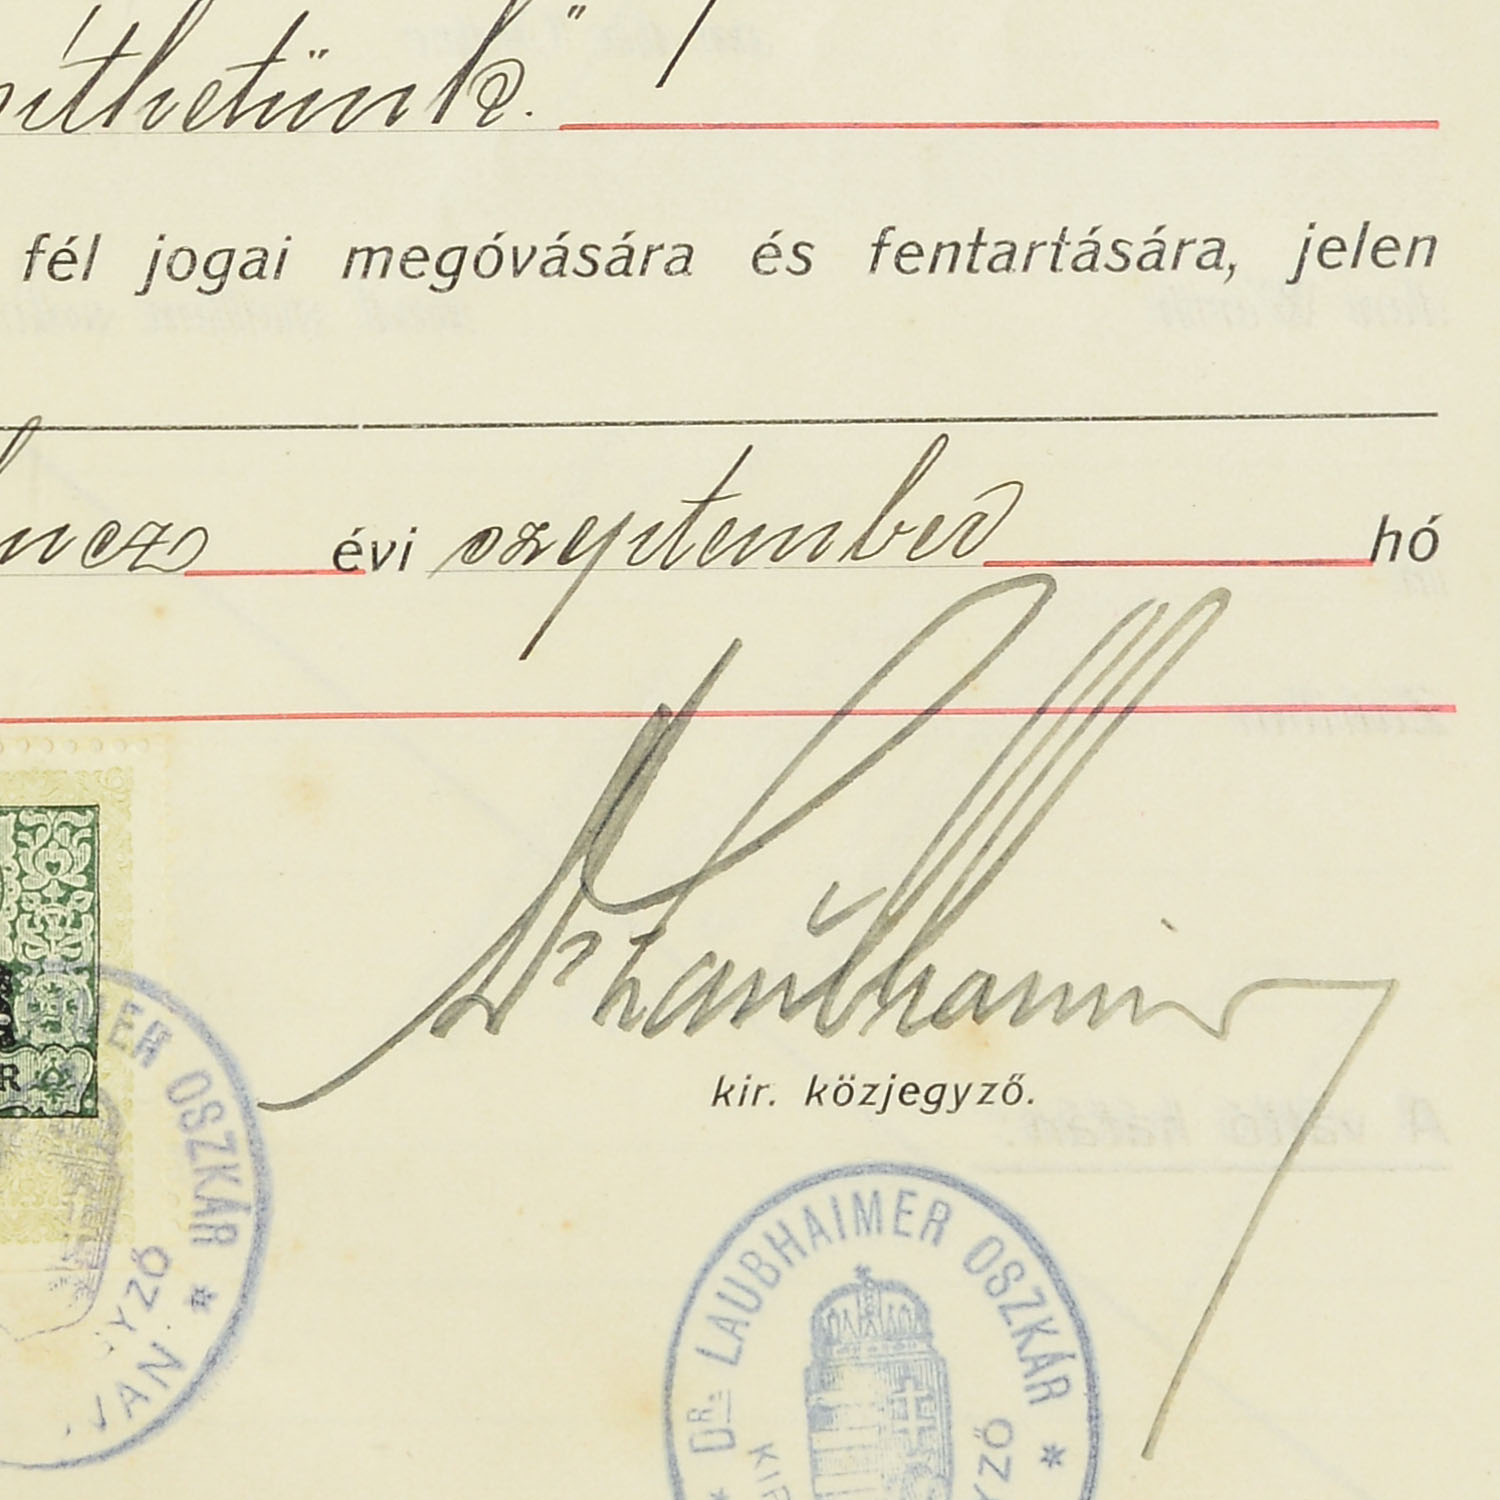 íthetünk."
fél jogai megóvására és fentartására, jelen
ncz évi szeptember hó
Dr Laubhaimer
kir. közjegyző.
MER OSZKÁR *
YZŐ
VÁN
R
* DR. LAUBHAIMER OSZKÁR *
KIR
YZŐ
A váltó hátán: